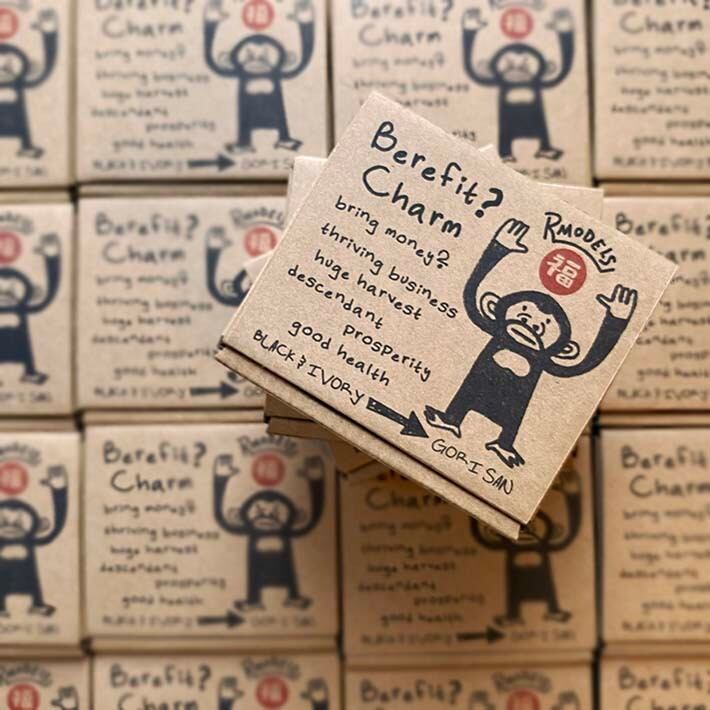 Berefit?
Charm
bring money?
thriving business
huge harvest
descendant
prosperity
good health
BLACK & IVORY
GORISAN
RMODELS
福